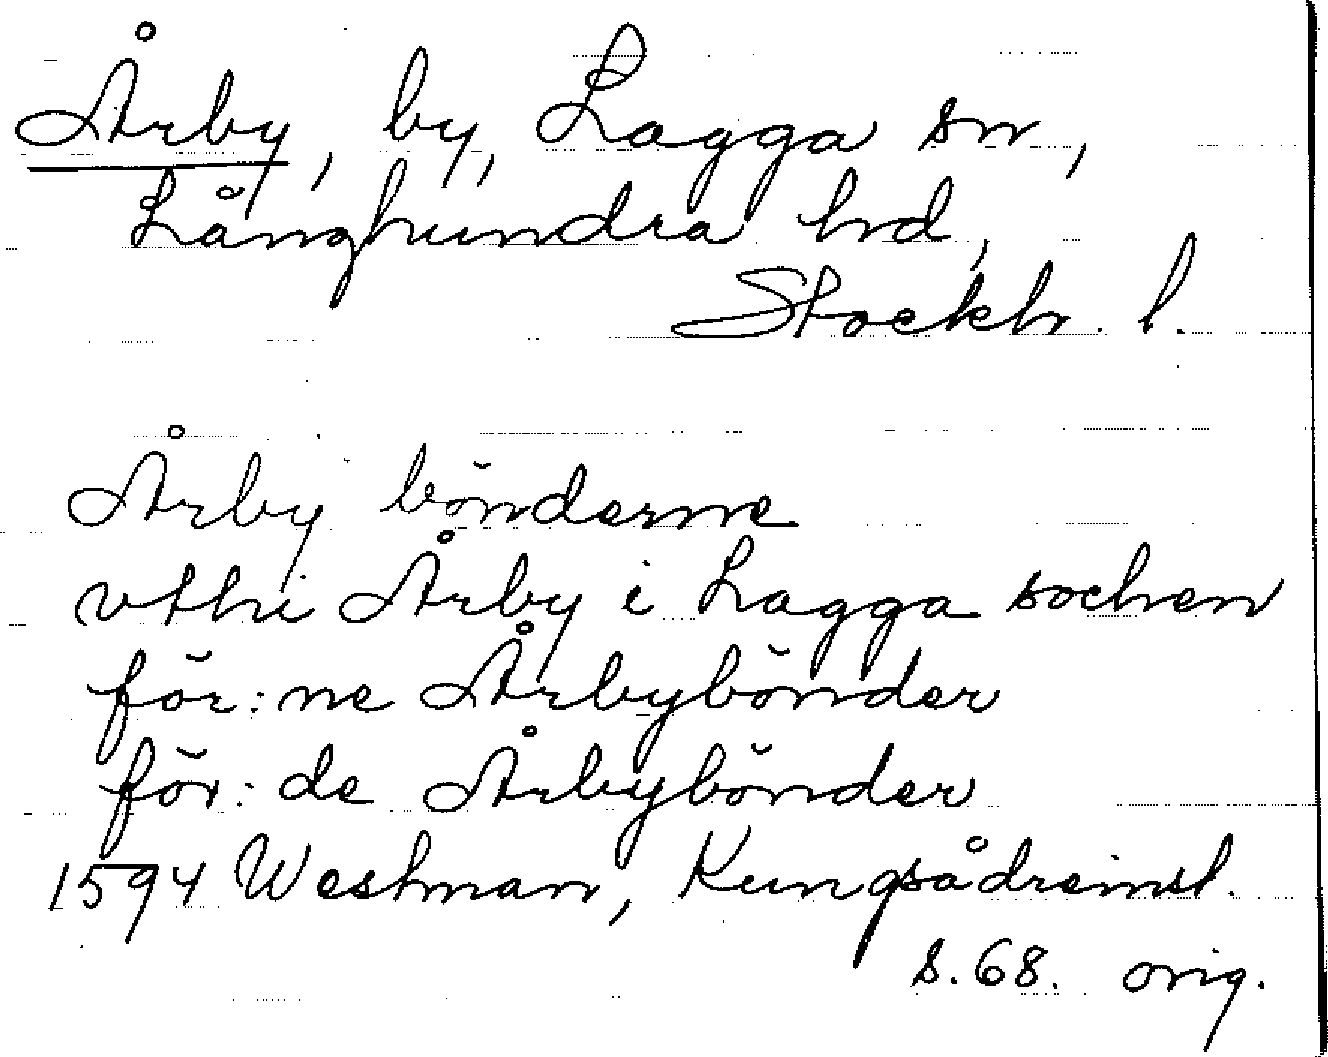 Årby, by, Lagga sn,
Långhundra hd,
Stockh. l.
Årby bönderne
vthi Årby i Lagga sochen
för:ne Årbybönder
för:de Årbybönder
1594 Westman, Kungsådreinst.
s. 68. orig.